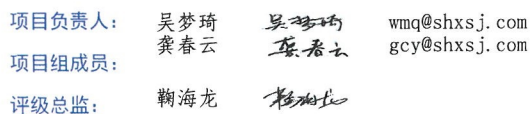 项目负责人： 吴梦琦 吴梦琦 wmq@shxsj.com
龚春云 龚春云 gcy@shxsj.com
项目组成员：
评级总监： 鞠海龙 鞠海龙